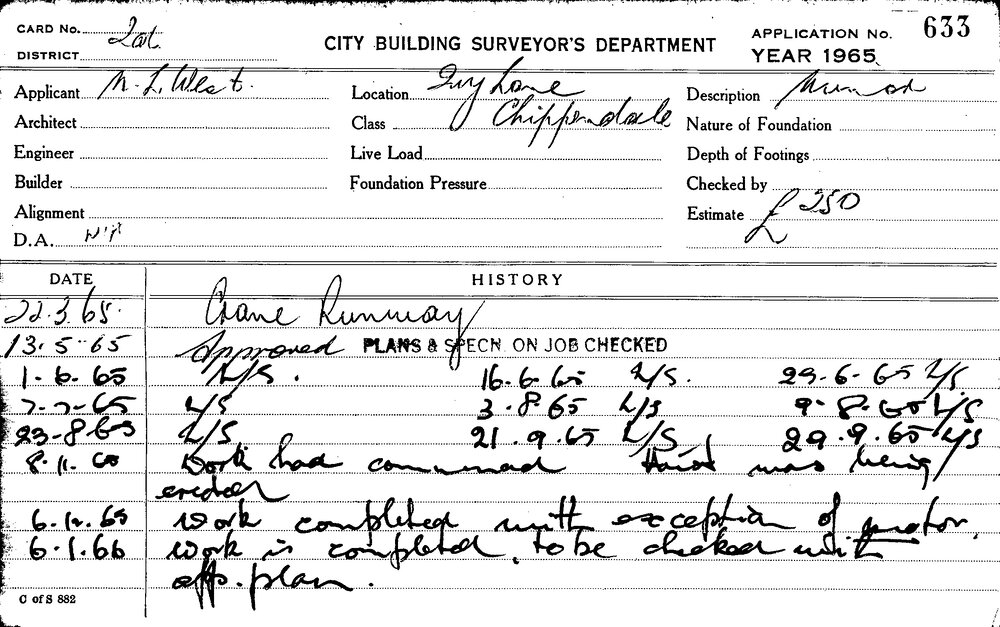 CARD No.
DISTRICT
CITY BUILDING SURVEYOR'S DEPARTMENT
APPLICATION No. 633
YEAR 1965
Applicant N. L. West.
Location Ivy Lane
Description
Architect
Class Chippendale
Nature of Foundation
Engineer
Live Load
Depth of Footings
Builder
Foundation Pressure
Checked by
Alignment
Estimate £ 250
D.A.
DATE HISTORY
22.3.65. Crane Runway
13.5.65 Approved PLANS & SPECN. ON JOB CHECKED
1.6.65 L/S. 16.6.65 L/S. 29.6.65 L/S.
7.7.65 L/S 3.8.65 L/S 9.8.65 L/S
23.8.65 L/S. 21.9.65 L/S 29.9.65 L/S
8.11.65 Work had commenced Hoist was being
erected
6.12.65 Work completed with exception of motor.
6.1.66 Work is completed, to be checked with
app. plan.
C of S 882